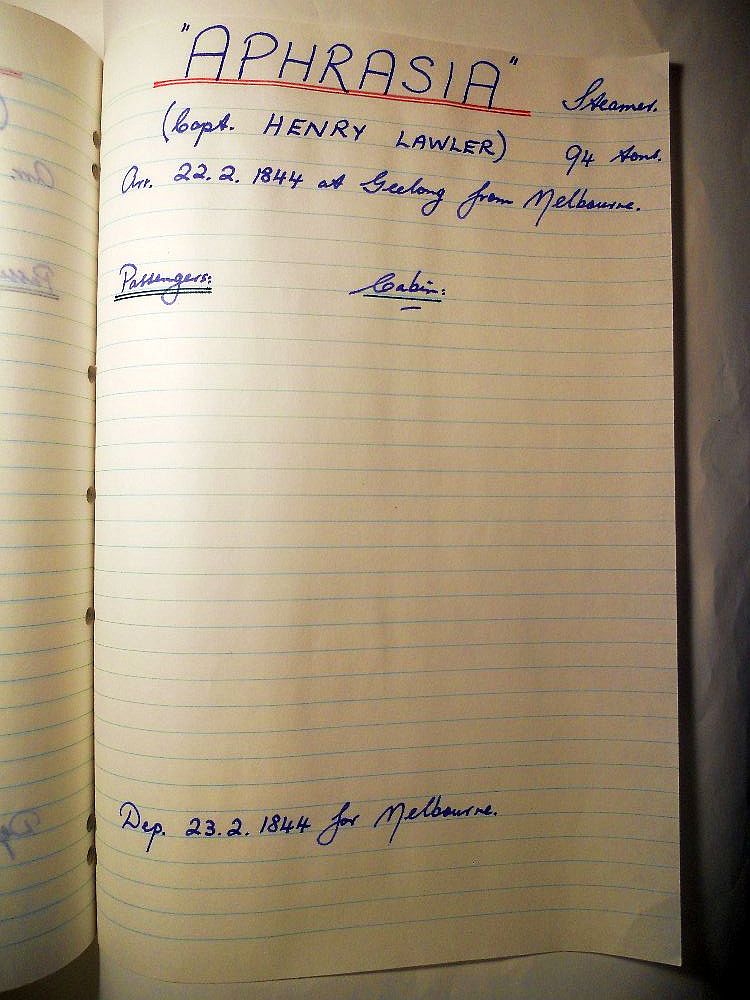 "APHRASIA"
Steamer.
(Capt. HENRY LAWLER)
94 tons.
Arr. 22.2.1844 at Geelong from Melbourne.
Passengers: Cabin:
Dep. 23.2.1844 for Melbourne.